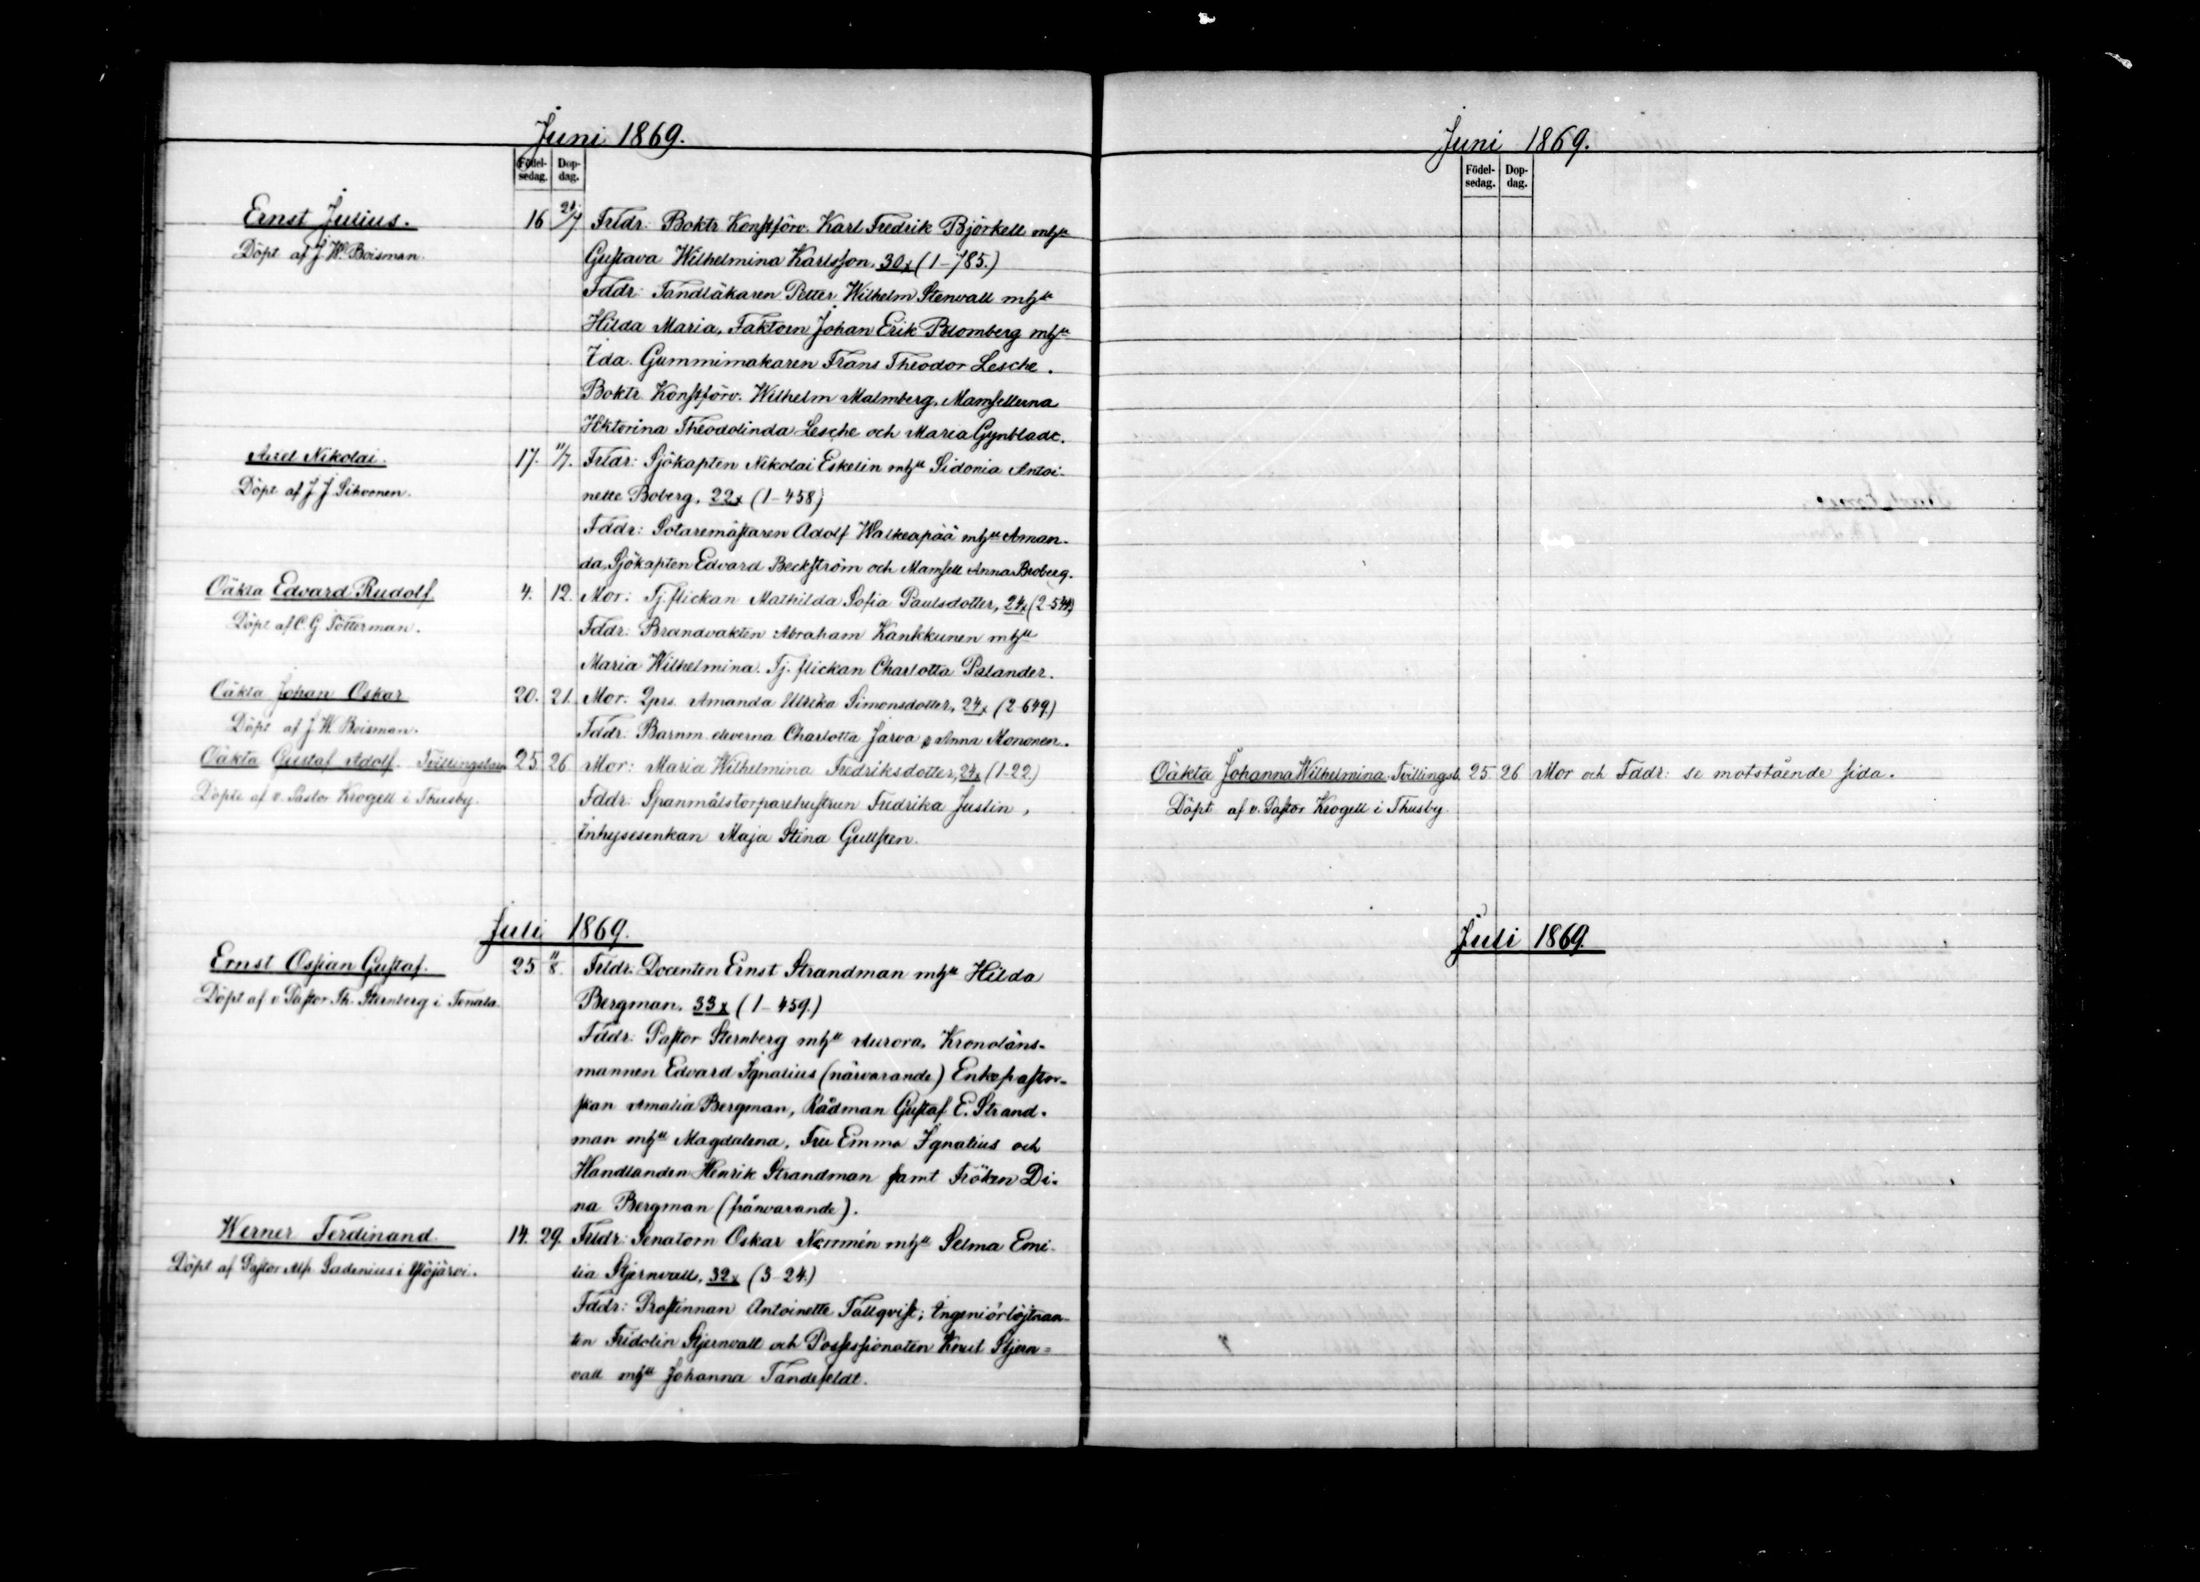 Juni 1869.
Födel-
sedag.
Dop-
dag.
Ernst Julius.
Döpt af J. W. Boisman.
16 21/7 Frldr: Boktr Konstförv. Karl Fredrik Björkell mhu
Gustava Wilhelmina Karlsson, 30x (1-785.)
Fddr: Tandläkaren Petter Wilhelm Stenvall mhu
Hilda Maria, Faktorn Johan Erik Blomberg mhu
Ida. Gummimakaren Frans Theodor Lesche.
Boktr. Konstförv. Wilhelm Malmberg, Mamsellerna
Theodolinda Lesche och Maria
Axel Nikolai.
Döpt af J J Sihvonen.
17. 11/7. Frldr: Sjökapten Nikolai Eskelin mhu Sidonia Antoi-
nette Boberg, 22x (1-458)
Fddr: Sotaremästaren Adolf Walkeapää mhu Aman-
da, Sjökapten Edvard Beckström och Mamsell Anna Broberg.
Oäkta Edvard Rudolf
Döpt af C. G Totterman.
4. 12. Mor: Tj. flickan Mathilda Sofia Paulsdotter, 24x (2-544)
Fddr: Brandvakten Abraham Kankkunen mhu
Maria Wilhelmina. Tj. flickan Charlotta Palander.
Oäkta Johan Oskar
Döpt af J W. Boisman.
20. 21. Mor: Amanda Ulrika Simonsdotter, 24x (2-649.)
Fddr: Barnm. eleverna Charlotta Jarva o Anna Mononen.
Oäkta Gustaf Adolf. Tvillingsbarn
Döpte af v. Pastor Krogell i Thusby.
25 26 Mor: Maria Wilhelmina Fredriksdotter, 24x (1-22)
Fddr: Spanmålstorparehustrun Fredrika Juslin,
Inhysesenkan Maja Stina Gullsten.
Juli 1869.
Ernst Ossian Gustaf.
Döpt af v Pastor Th. Sternberg i Tenala
25 11/8. Frldr: Docenten Ernst Strandman mhu Hilda
Bergman, 33x (1-459.)
Fddr: Pastor Sternberg mhu Aurora, Kronoläns-
mannen Edvard Ignatius (närvarande) Enkepastor-
skan Amalia Bergman, Rådman Gustaf E. Strand-
man mhu Magdalena, Fru Emma Ignatius och
Handlanden Henrik Strandman samt Fröken Di-
na Bergman (frånvarande).
Werner Ferdinand.
Döpt af Pastor Alfr. Sadenius i Ylöjärvi.
14. 29. Frldr: Senatorn Oskar Norrmén mhu Selma Emi-
lia Stjernvall, 32x (3-24.)
Fddr: Prostinnan Antoinette Tallqvist; Ingeniörlöjtnan-
ten Fridolin Stjernvall och Possessionaten Knut Stjern-
vall mhu Johanna Tandefeldt.
Juni 1869.
Födel-
sedag.
Dop-
dag.
Oäkta Johanna Wilhelmina Tvillingsb. 25. 26 Mor och Fddr: se motstående sida.
Döpt af v. Pastor Krogell i Thusby.
Juli 1869.